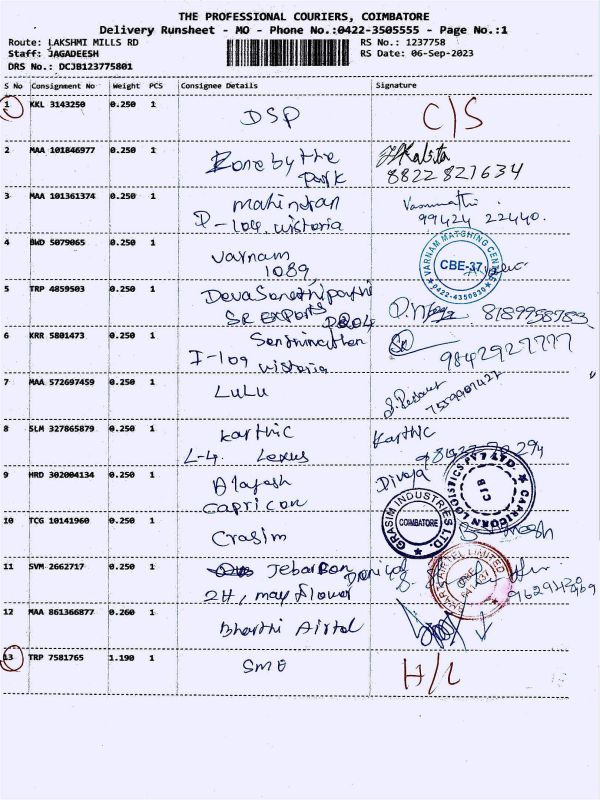 THE PROFESSIONAL COURIERS, COIMBATORE
Delivery Runsheet - MO - Phone No.:0422-3505555 - Page No.:1
Route: LAKSHMI MILLS RD
RS No.: 1237758
Staff: JAGADEESH
RS Date: 06-Sep-2023
DRS No.: DCJB123775801
S No Consignment No Weight PCS Consignee Details Signature
1 KKL 3143250 0.250 1 DSP C/S
2 MAA 101846977 0.250 1 Zone by the
park
Kalita
8822 827634
3 MAA 101361374 0.250 1 mahindran
D-104. victoria
Vasumathi
99424 22440.
4 BWD 5079065 0.250 1 varnam
1089,
VARNAM MATCHING CENTRE
CBE-37
0422-4350630
5 TRP 4859503 0.250 1
SR EXPORTS
8189958783
6 KRR 5801473 0.250 1
I-109 victoria
9842927777
7 MAA 572697459 0.250 1 LULU
8 SLM 327865879 0.250 1 karthic
L-4. Lexus
Karthic
9 HRD 302004134 0.250 1
capricon
Divya
CAPRICORN LOGISTICS PVT LTD.
CJB
10 TCG 10141960 0.250 1 Grasim
GRASIM INDUSTRIES LTD.
COIMBATORE
11 SVM 2662717 0.250 1 Jebarson
2H, may flower
12 MAA 861366877 0.260 1 Bharthi Airtel
13 TRP 7581765 1.190 1 SME H/L